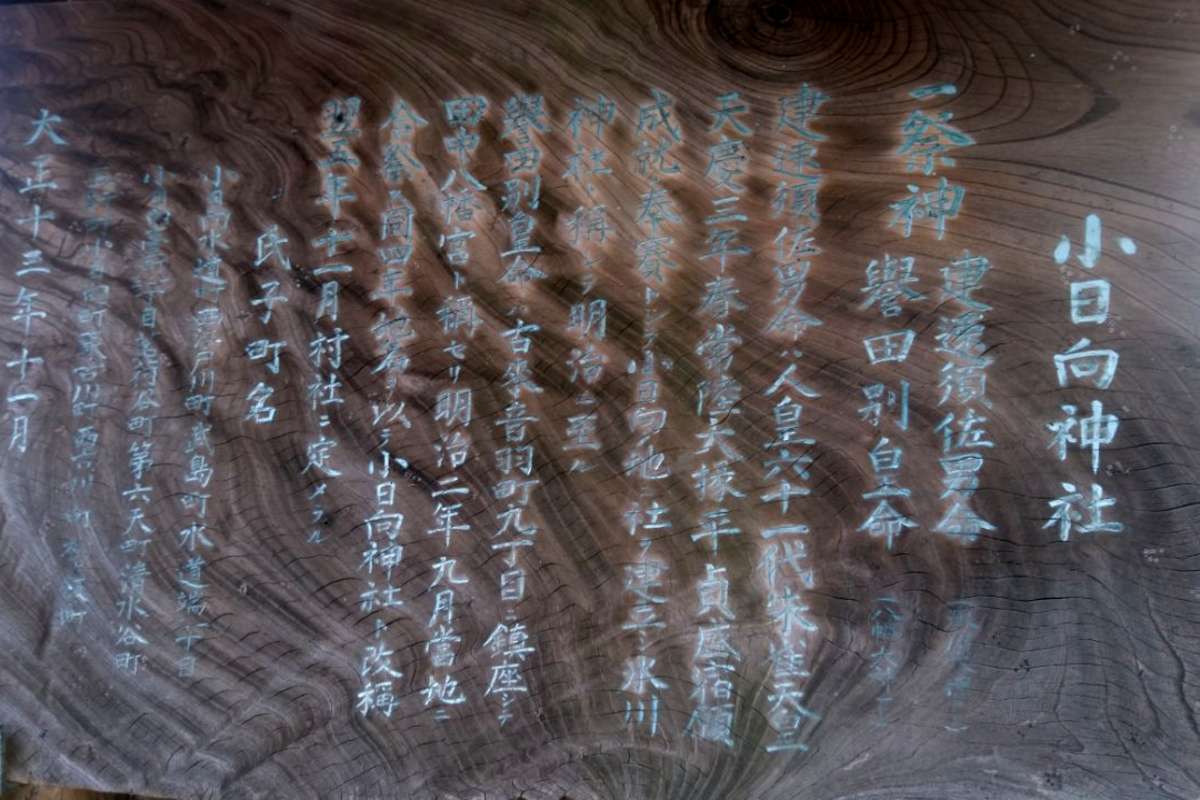 小日向神社
一祭神 建速須佐男命
譽田別皇命 (八幡大神)
建速須佐男命ハ人皇六十一代朱雀天皇
天慶三年春常陸大掾平貞盛宿願
成就奉賽トシテ小日向ノ地ニ社ヲ建立シ氷川
神社ト稱シテ明治ニ至ル
譽田別皇命ハ古來音羽町九丁目ニ鎮座シテ
田中八幡宮ト稱セリ明治二年九月當地ニ
合祭ス同四年地名ヲ以テ小日向神社ト改稱
翌五年十一月村社ニ定メラル
氏子町名
小日向水道町 西江戸川町 武島町 水道端一丁目
丁目 茗荷谷町 第六天町 清水谷町
町 東古川町 西古川町
大正十三年十一月